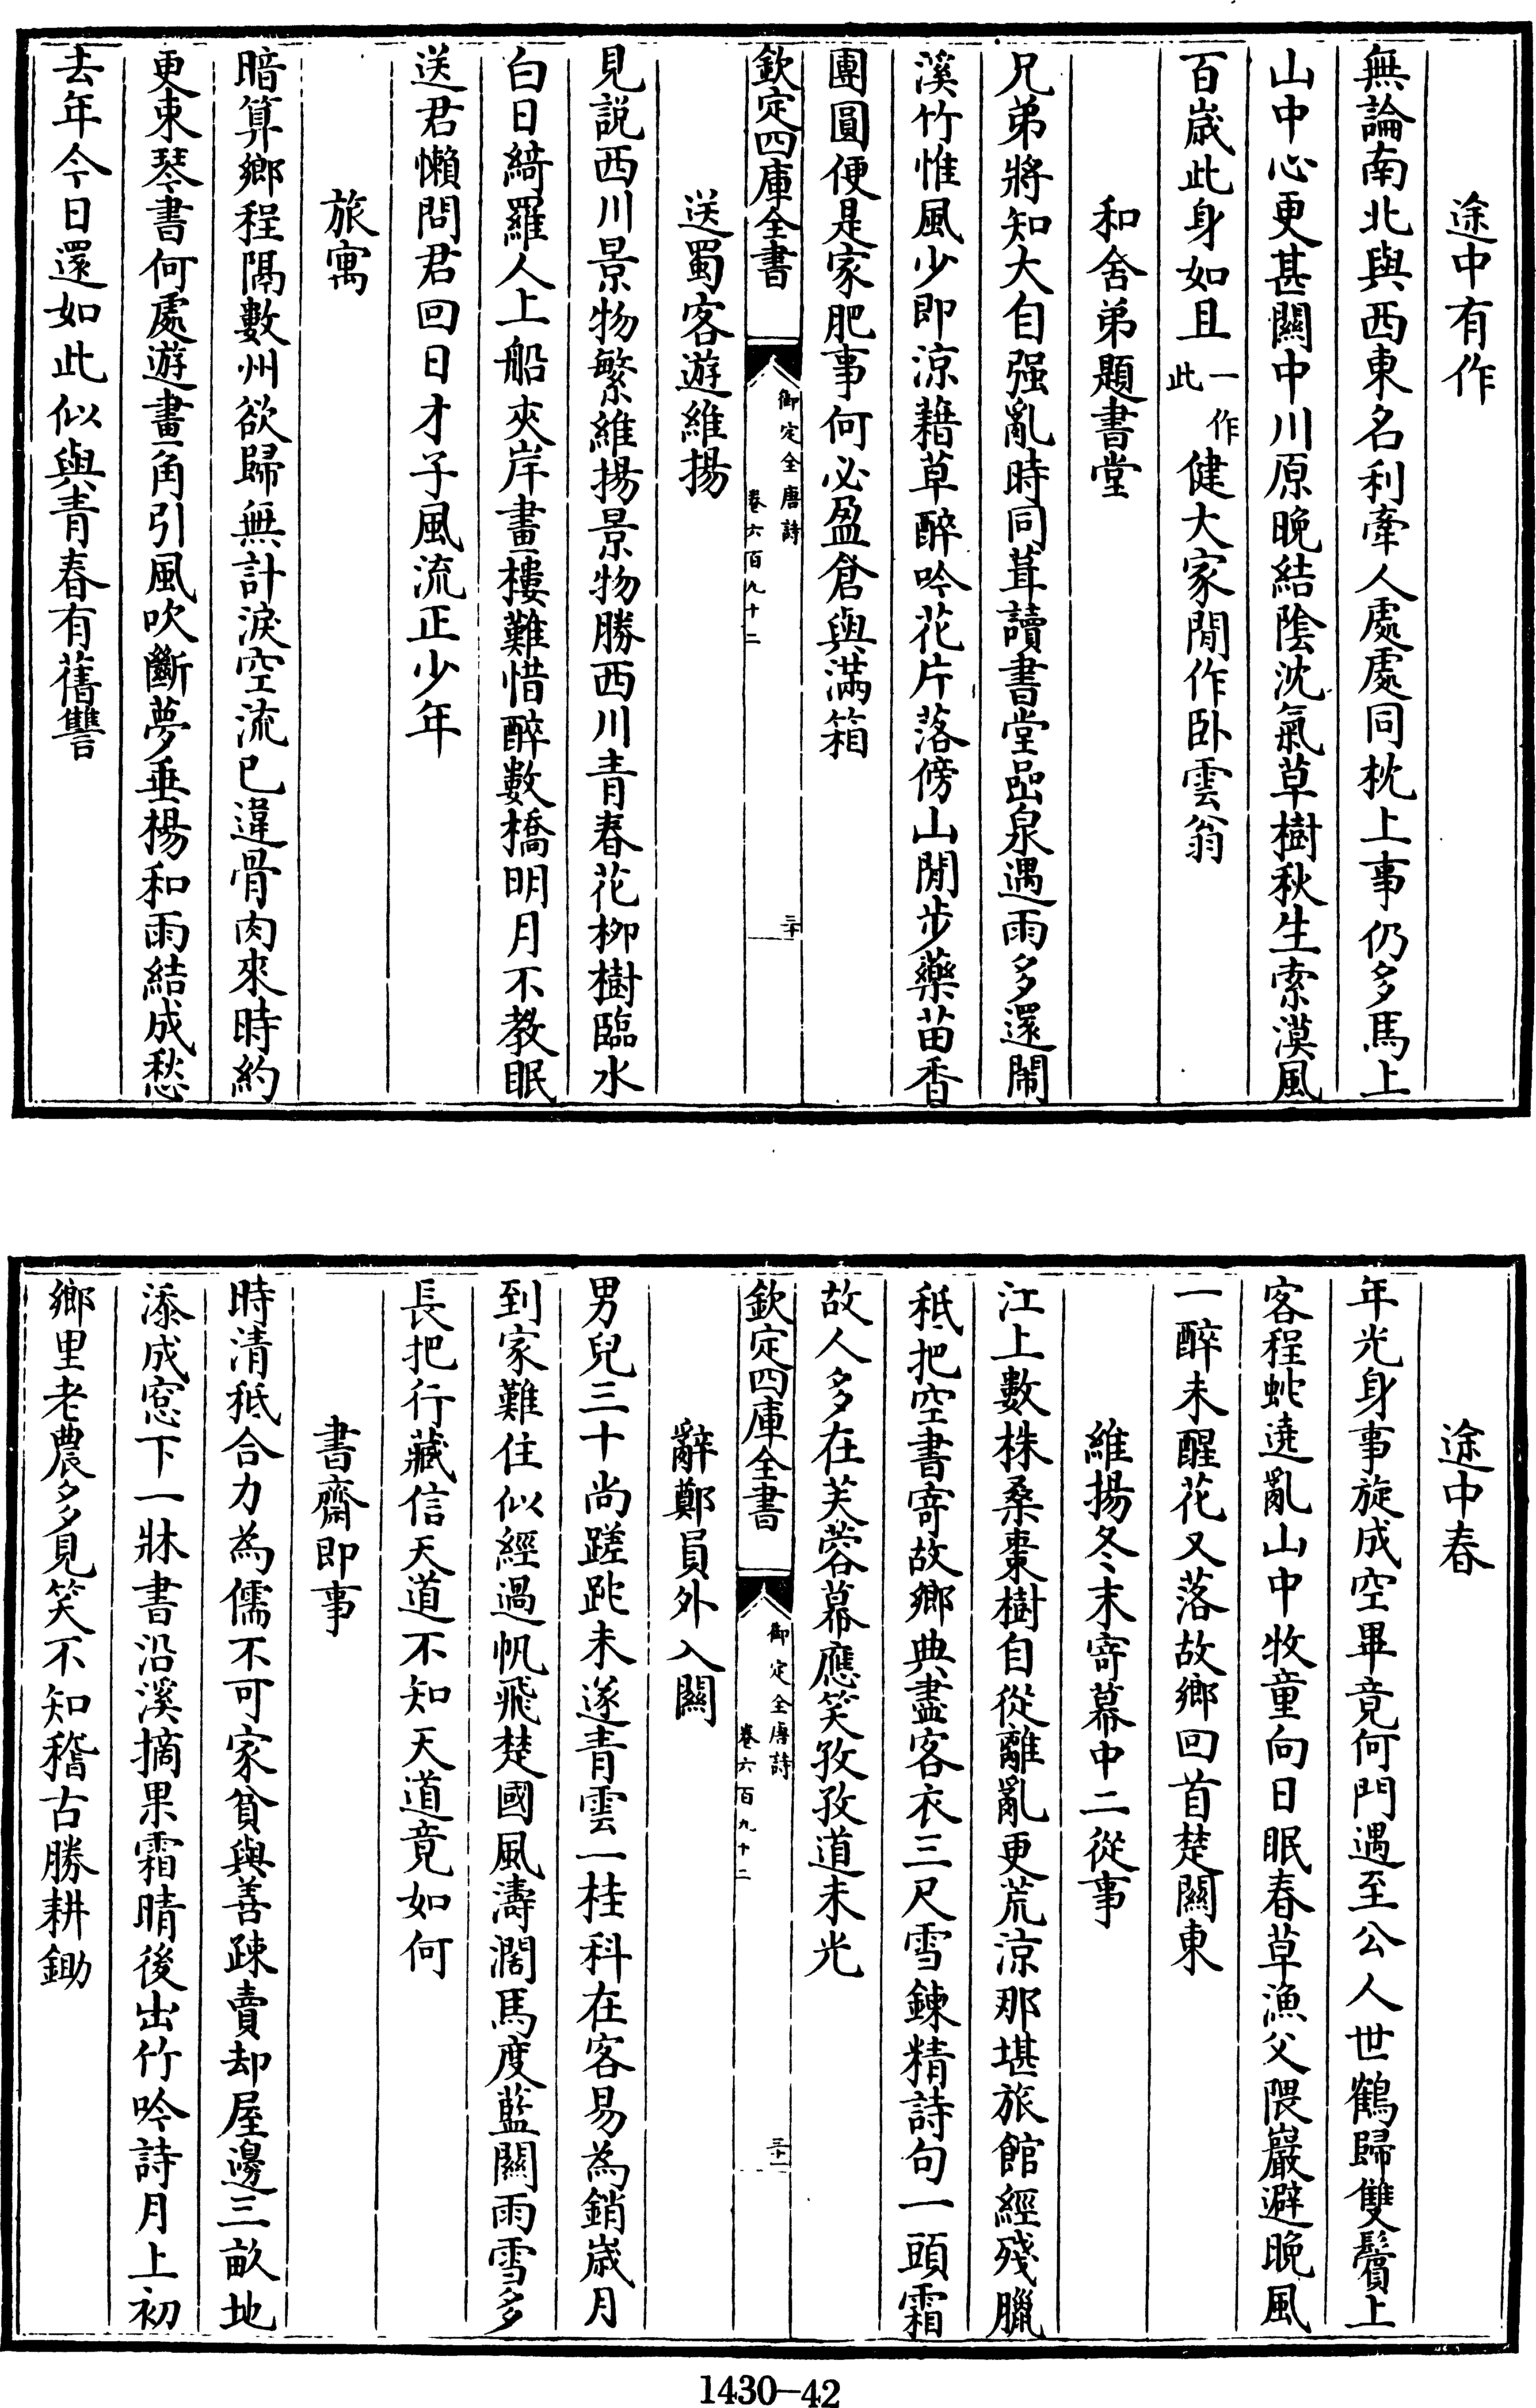 途中有作
無論南北與西東名利牽人處處同枕上事仍多馬上
山中心更甚關中川原晚結隂沈氣草樹秋生索漠風
百歲此身如且一作此健大家閒作卧雲翁
和舍弟題書堂
兄弟將知大自强亂時同葺讀書堂嵒泉遇雨多還鬧
溪竹惟風少即涼藉草醉吟花片落傍山閒步藥苗香
團圓便是家肥事何必盈倉與滿箱
欽定四庫全書
御定全唐詩
卷六百九十二
三十
送蜀客遊維揚
見説西川景物繁維揚景物勝西川青春花柳樹臨水
白日綺羅人上船夾岸畫樓難惜醉數橋明月不教眠
送君懶問君回日才子風流正少年
旅寓
暗算鄉程隔數州欲歸無計淚空流已違骨肉來時約
更束琴書何處遊畫角引風吹斷夢垂楊和雨結成愁
去年今日還如此似與青春有舊讐
途中春
年光身事旋成空畢竟何門遇至公人世鶴歸雙鬢上
客程蛇遶亂山中牧童向日眠春草漁父隈巖避晚風
一醉未醒花又落故鄉回首楚關東
維揚冬末寄幕中二從事
江上數株桑棗樹自從離亂更荒涼那堪旅館經殘臘
秖把空書寄故鄉典盡客衣三尺雪鍊精詩句一頭霜
故人多在芙蓉幕應笑孜孜道未光
欽定四庫全書
御定全唐詩
卷六百九十二
三十一
辭鄭員外入關
男兒三十尚蹉跎未遂青雲一桂科在客易為銷歲月
到家難住似經過帆飛楚國風濤濶馬度藍關雨雪多
長把行藏信天道不知天道竟如何
書齋即事
時清秖合力為儒不可家貧與善疎賣却屋邊三畝地
添成窓下一牀書沿溪摘果霜晴後出竹吟詩月上初
鄉里老農多見笑不知稽古勝耕鋤
1430-42